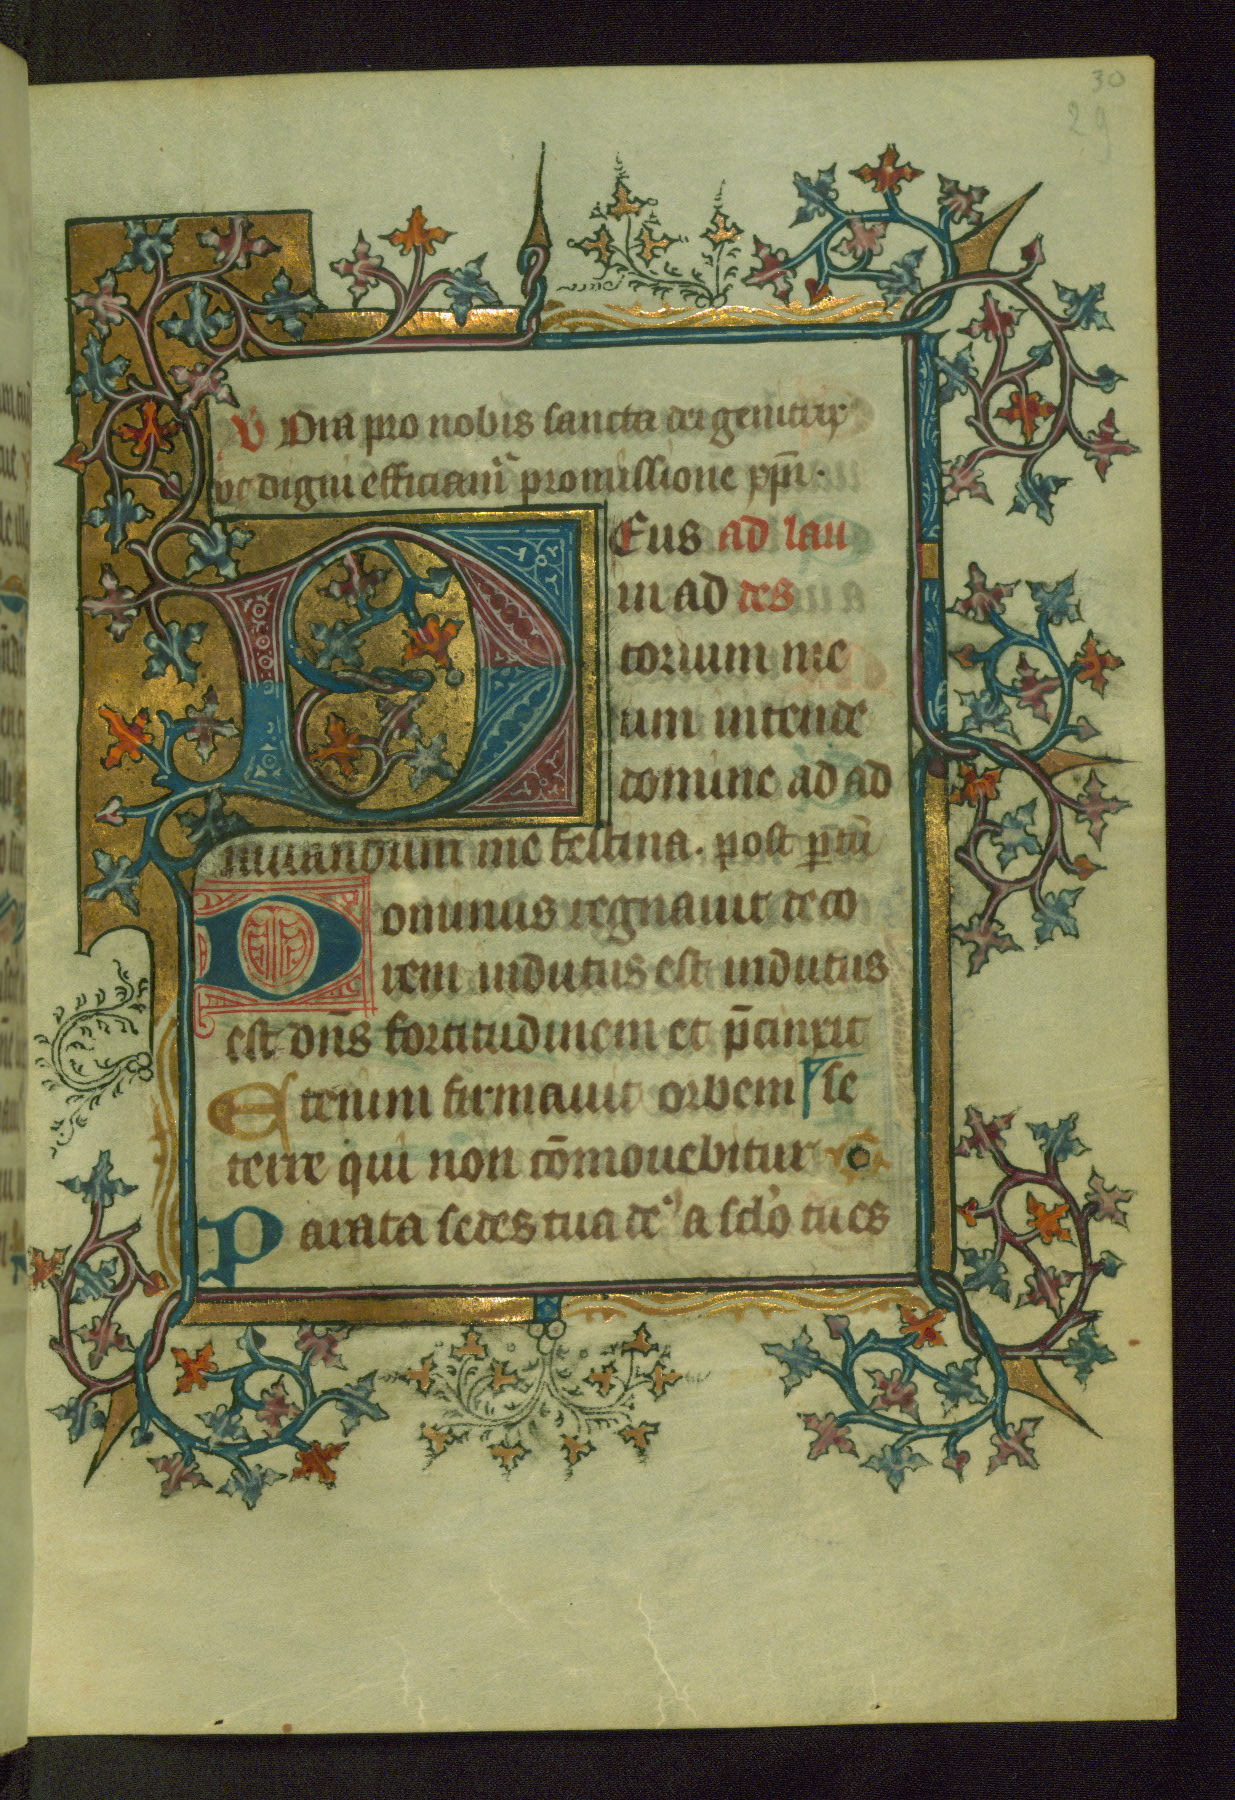 30
29
v Ora pro nobis sancta dei genitrix
ut digni efficiam᷑ promissione xp̄i.
Deus ad lau
in ad des
torium me
um intende
domine ad ad
iuuandum me festina. post partū
Dominus regnauit deco
rem indutus est indutus
est dn̄s fortitudinem et p̄cinxit
Etenim firmauit orbem se
terre qui non cōmouebitur
Parata sedes tua de᷑ a sclo tu es